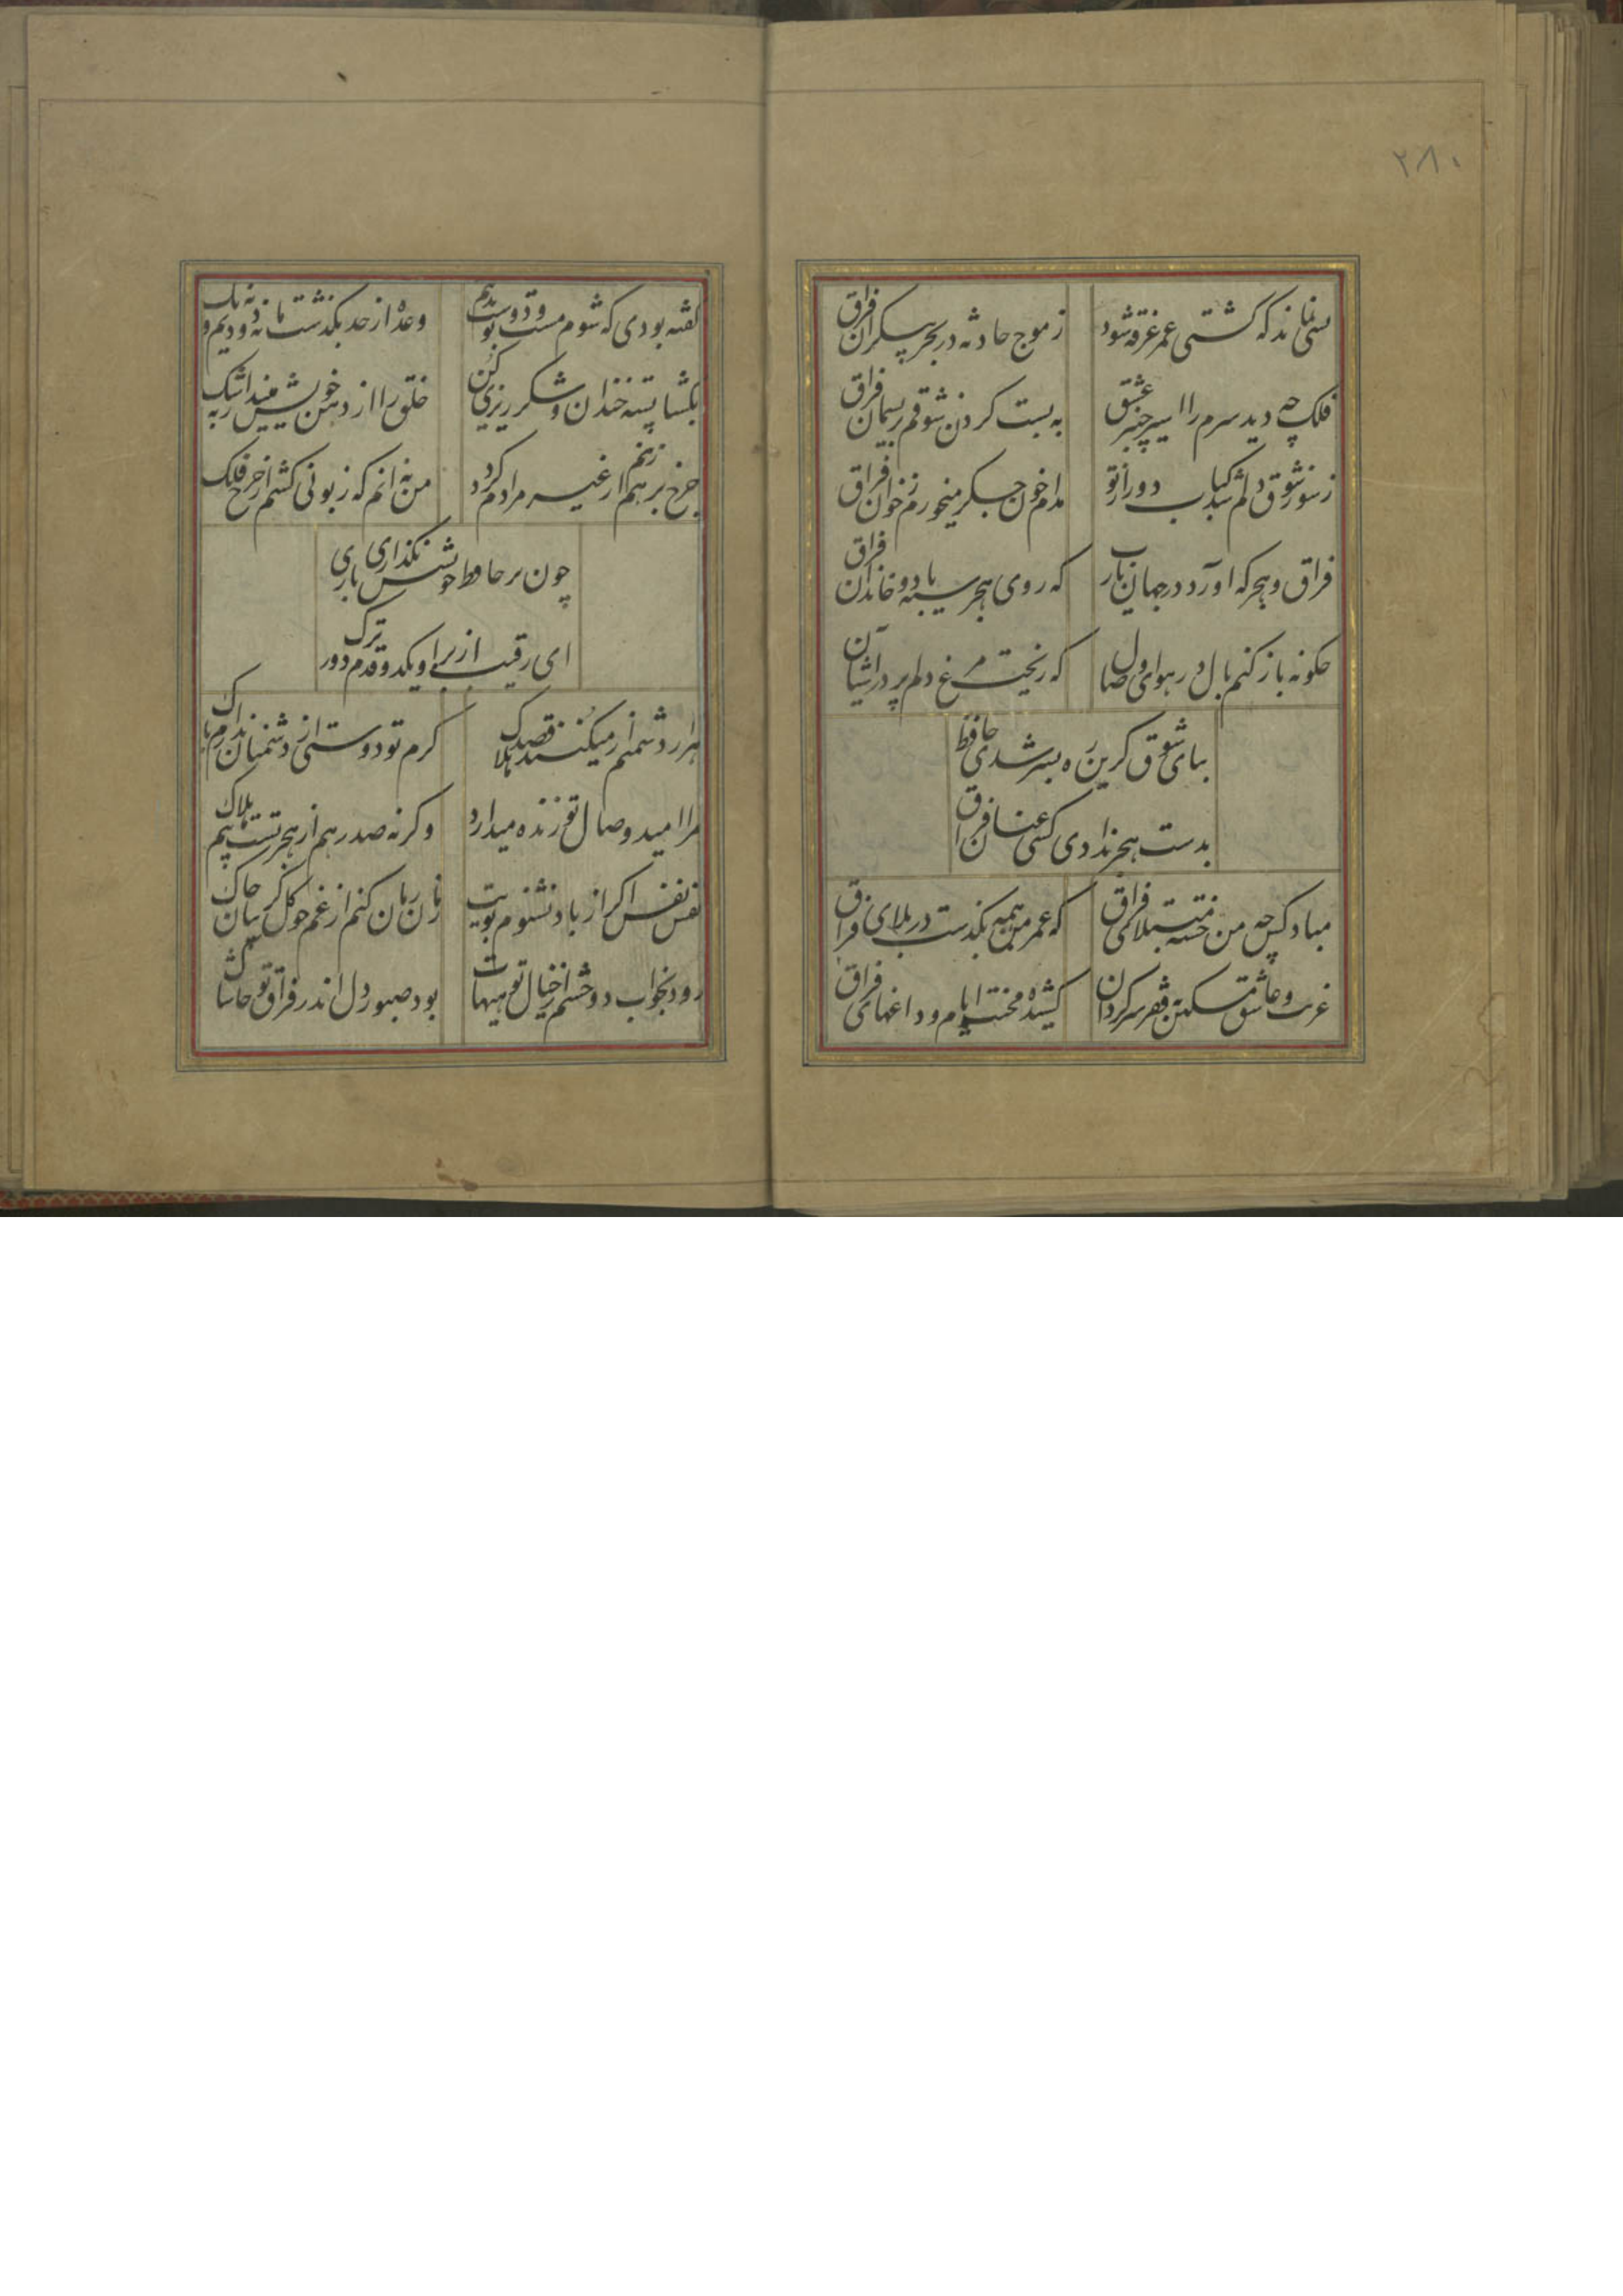 ۲۸۰
بسی نماند که کشتی عمر غرقه شود
ز موج حادثه در بحر بیکران فراق
فلک چه دید سرم را اسیر چنبر عشق
به بست کردن شوقم بریسمان فراق
ز سوز شوق دلم شد کباب دور از تو
مدام خون جکر میخورم ز خوان فراق
فراق و هجر که اورد در جهان یارب
که روی هجر سیه باد و خاندان فراق
حکونه باز کنم بال در هوای وصال
که ریخت مرغ دلم پر در اشیان
بپای شوق کر این ره بسر شدی حافظ
بدست هجر ندادی کسی عنان فراق
مباد کس چه من خسته مبتلای فراق
که عمر من همه بکذست در بلای فراق
غریب و عاشق و مسکین و فقیر و سرکردان
کشیده محنت ایام و داغهای فراق
کفته بودی که شوم مست و دو بوست بدهم
وعده از حد بکذشت ما نه دو دیدیم و نه یک
بکشا پسته خندان و شکر ریزی کن
خلق را از دهن خویش مینداز بشک
چرخ بر هم زنم ار غیر مرادم کردد
من نه انم که زبونی کشم از چرخ فلک
چون بر حافظ خویشش نکذاری باری
ای رقیب از بر او یکدو قدم دورترک
هزار دشمنم ار میکنند قصد هلاک
کرم تو دوستی از دشمنان ندارم باک
مرا امید وصال تو زنده میدارد
و کرنه صد رهم از هجر تست بیم هلاک
نفس نفس اکر از باد نشنوم بویت
زمان زمان کنم از غم چو کل کریبان چاک
رود بخواب دو چشم از خیال تو هیهات
بود صبور دل اندر فراق تو حاشاک